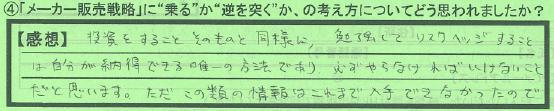 ④「メーカー販売戦略」に“乗る”か“逆を突く”か、の考え方についてどう思われましたか？
【感想】 投資をすること そのものと 同様に、勉強して リスクヘッジすること
は自分が納得できる唯一の方法であり 必ずやらなければいけないこと
だと思います。ただ この類の情報はこれまで入手できなかったので